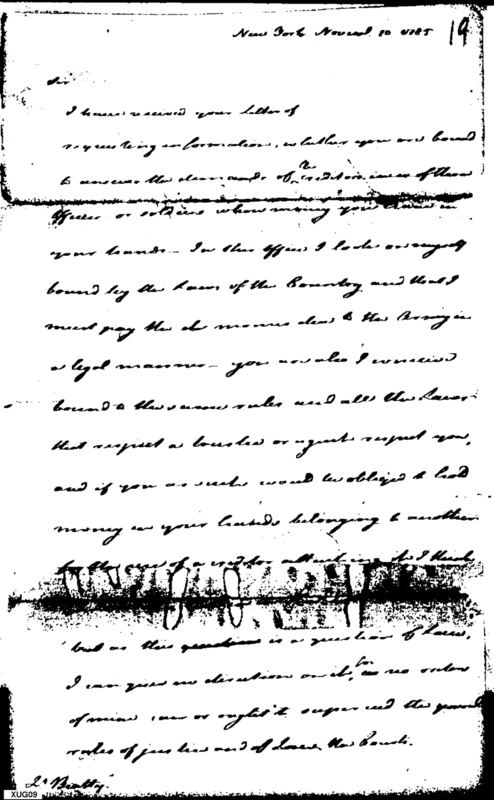 New York Novem 10 1785
19
Sir
I have received your letter of
requesting information, whether you are bound
to answer the demands of the creditors in case of those
officers or soldiers whose money you have in
your hands - In this Office I look on myself
bound by the Laws of the Country and that I
must pay the monies due to the Army in
a legal manner - you are also I conceive
bound to the same rules and all the Laws
that respect a trustee or agent respect you,
and if you as such would be obliged to hold
money in your hands belonging to another
for the use of a creditor attaching it I think
but as this is a question of Law,
I can give no direction on it, for as no order
of mine can or ought to supercede the general
rules of justice and of Law, the Courts.
Jn Beatty
XUG09